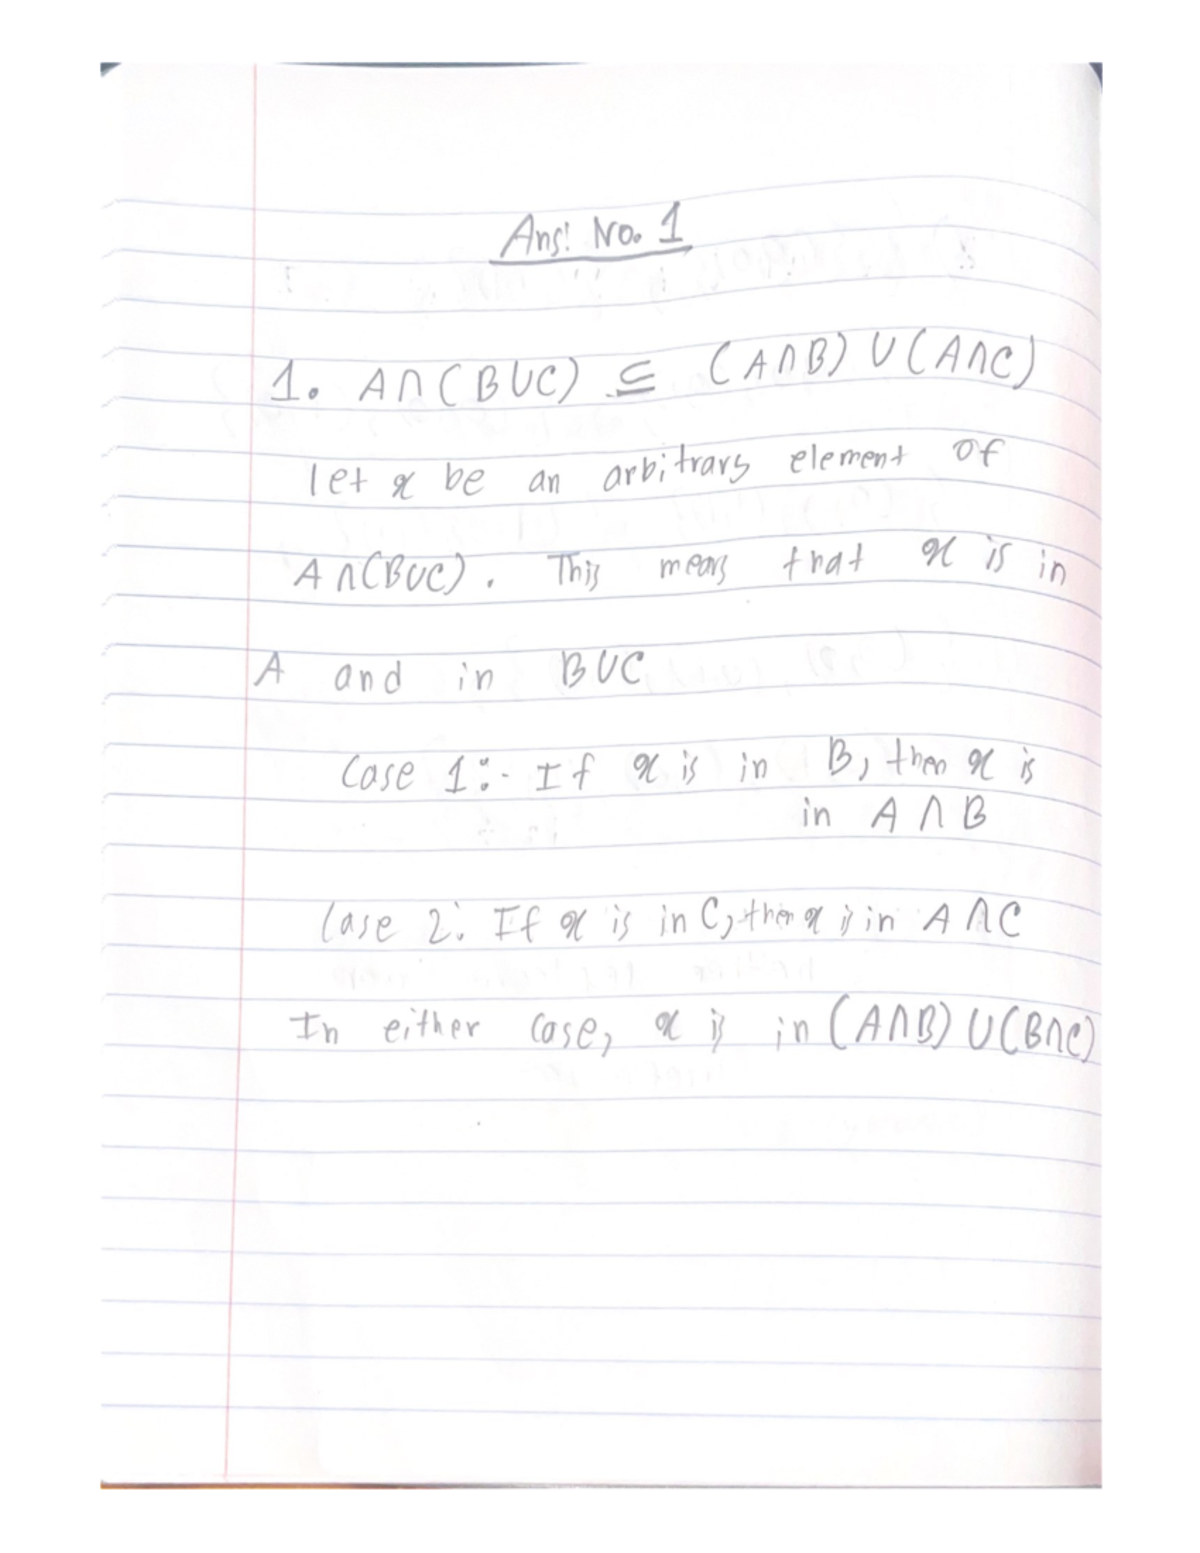 Ans: No. 1
1. A∩(B∪C) ⊆ (A∩B) ∪ (A∩C)
let x be an arbitrary element of
A∩(B∪C). This means that x is in
A and in B∪C
Case 1:- If x is in B, then x is
in A∩B
Case 2: If x is in C, then x is in A∩C
In either case, x is in (A∩B) ∪ (B∩C)